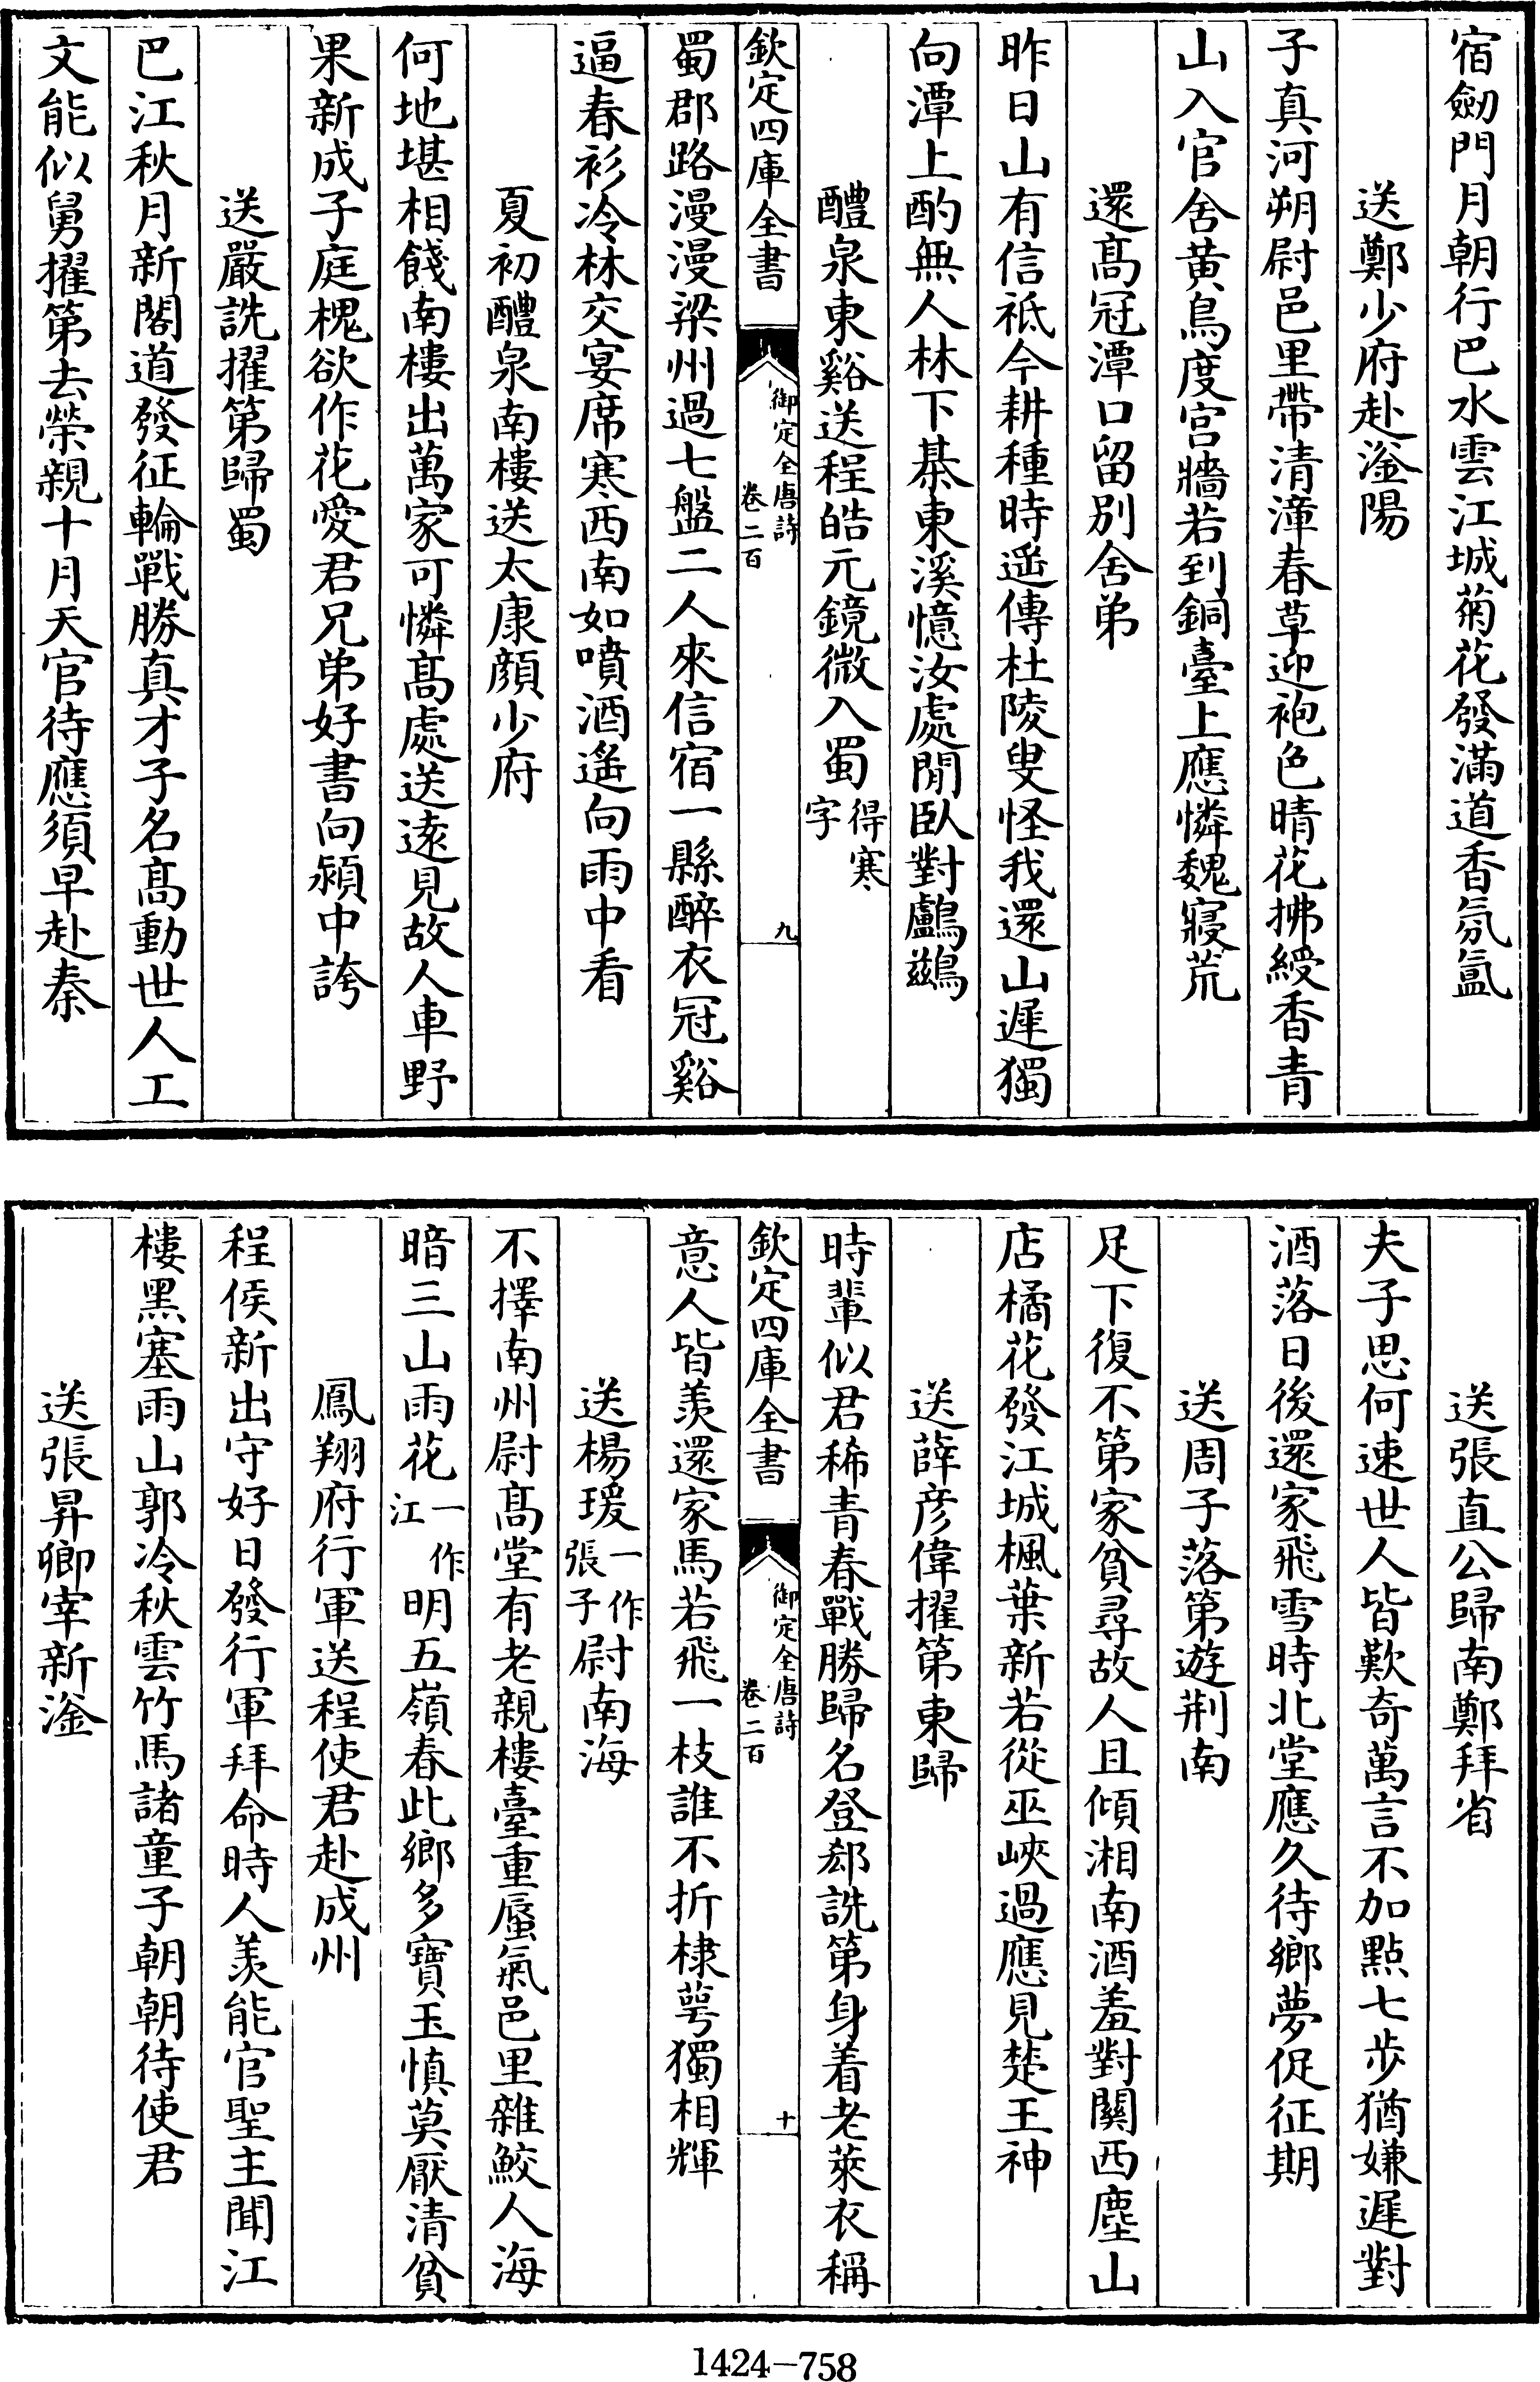 宿劒門月朝行巴水雲江城菊花發滿道香氛氲
送鄭少府赴滏陽
子真河朔尉邑里帶清漳春草迎袍色晴花拂綬香青
山入官舍黄鳥度宫牆若到銅臺上應憐魏寢荒
還髙冠潭口留别舍弟
昨日山有信祗今耕種時遥傳杜陵叟怪我還山遲獨
向潭上酌無人林下棊東溪憶汝處閒臥對鸕鷀
醴泉東谿送程皓元鏡微入蜀得寒字
欽定四庫全書
御定全唐詩
卷二百
九
蜀郡路漫漫梁州過七盤二人來信宿一縣醉衣冠谿
逼春衫冷林交宴席寒西南如噴酒遙向雨中看
夏初醴泉南樓送太康顔少府
何地堪相餞南樓出萬家可憐髙處送遠見故人車野
果新成子庭槐欲作花愛君兄弟好書向潁中誇
送嚴詵擢第歸蜀
巴江秋月新閣道發征輪戰勝真才子名髙動世人工
文能似舅擢第去榮親十月天官待應須早赴秦
送張直公歸南鄭拜省
夫子思何速世人皆歎奇萬言不加點七步猶嫌遲對
酒落日後還家飛雪時北堂應久待鄉夢促征期
送周子落第遊荆南
足下復不第家貧尋故人且傾湘南酒羞對闗西塵山
店橘花發江城楓葉新若從巫峽過應見楚王神
送薛彦偉擢第東歸
時輩似君稀青春戰勝歸名登郄詵第身着老萊衣稱
欽定四庫全書
御定全唐詩
卷二百
十
意人皆羨還家馬若飛一枝誰不折棣萼獨相輝
送楊瑗一作張子尉南海
不擇南州尉髙堂有老親樓臺重蜃氣邑里雜鮫人海
暗三山雨花一作江明五嶺春此鄉多寶玉慎莫厭清貧
鳳翔府行軍送程使君赴成州
程侯新出守好日發行軍拜命時人羨能官聖主聞江
樓黑塞雨山郭冷秋雲竹馬諸童子朝朝待使君
送張昇卿宰新滏
1424—758